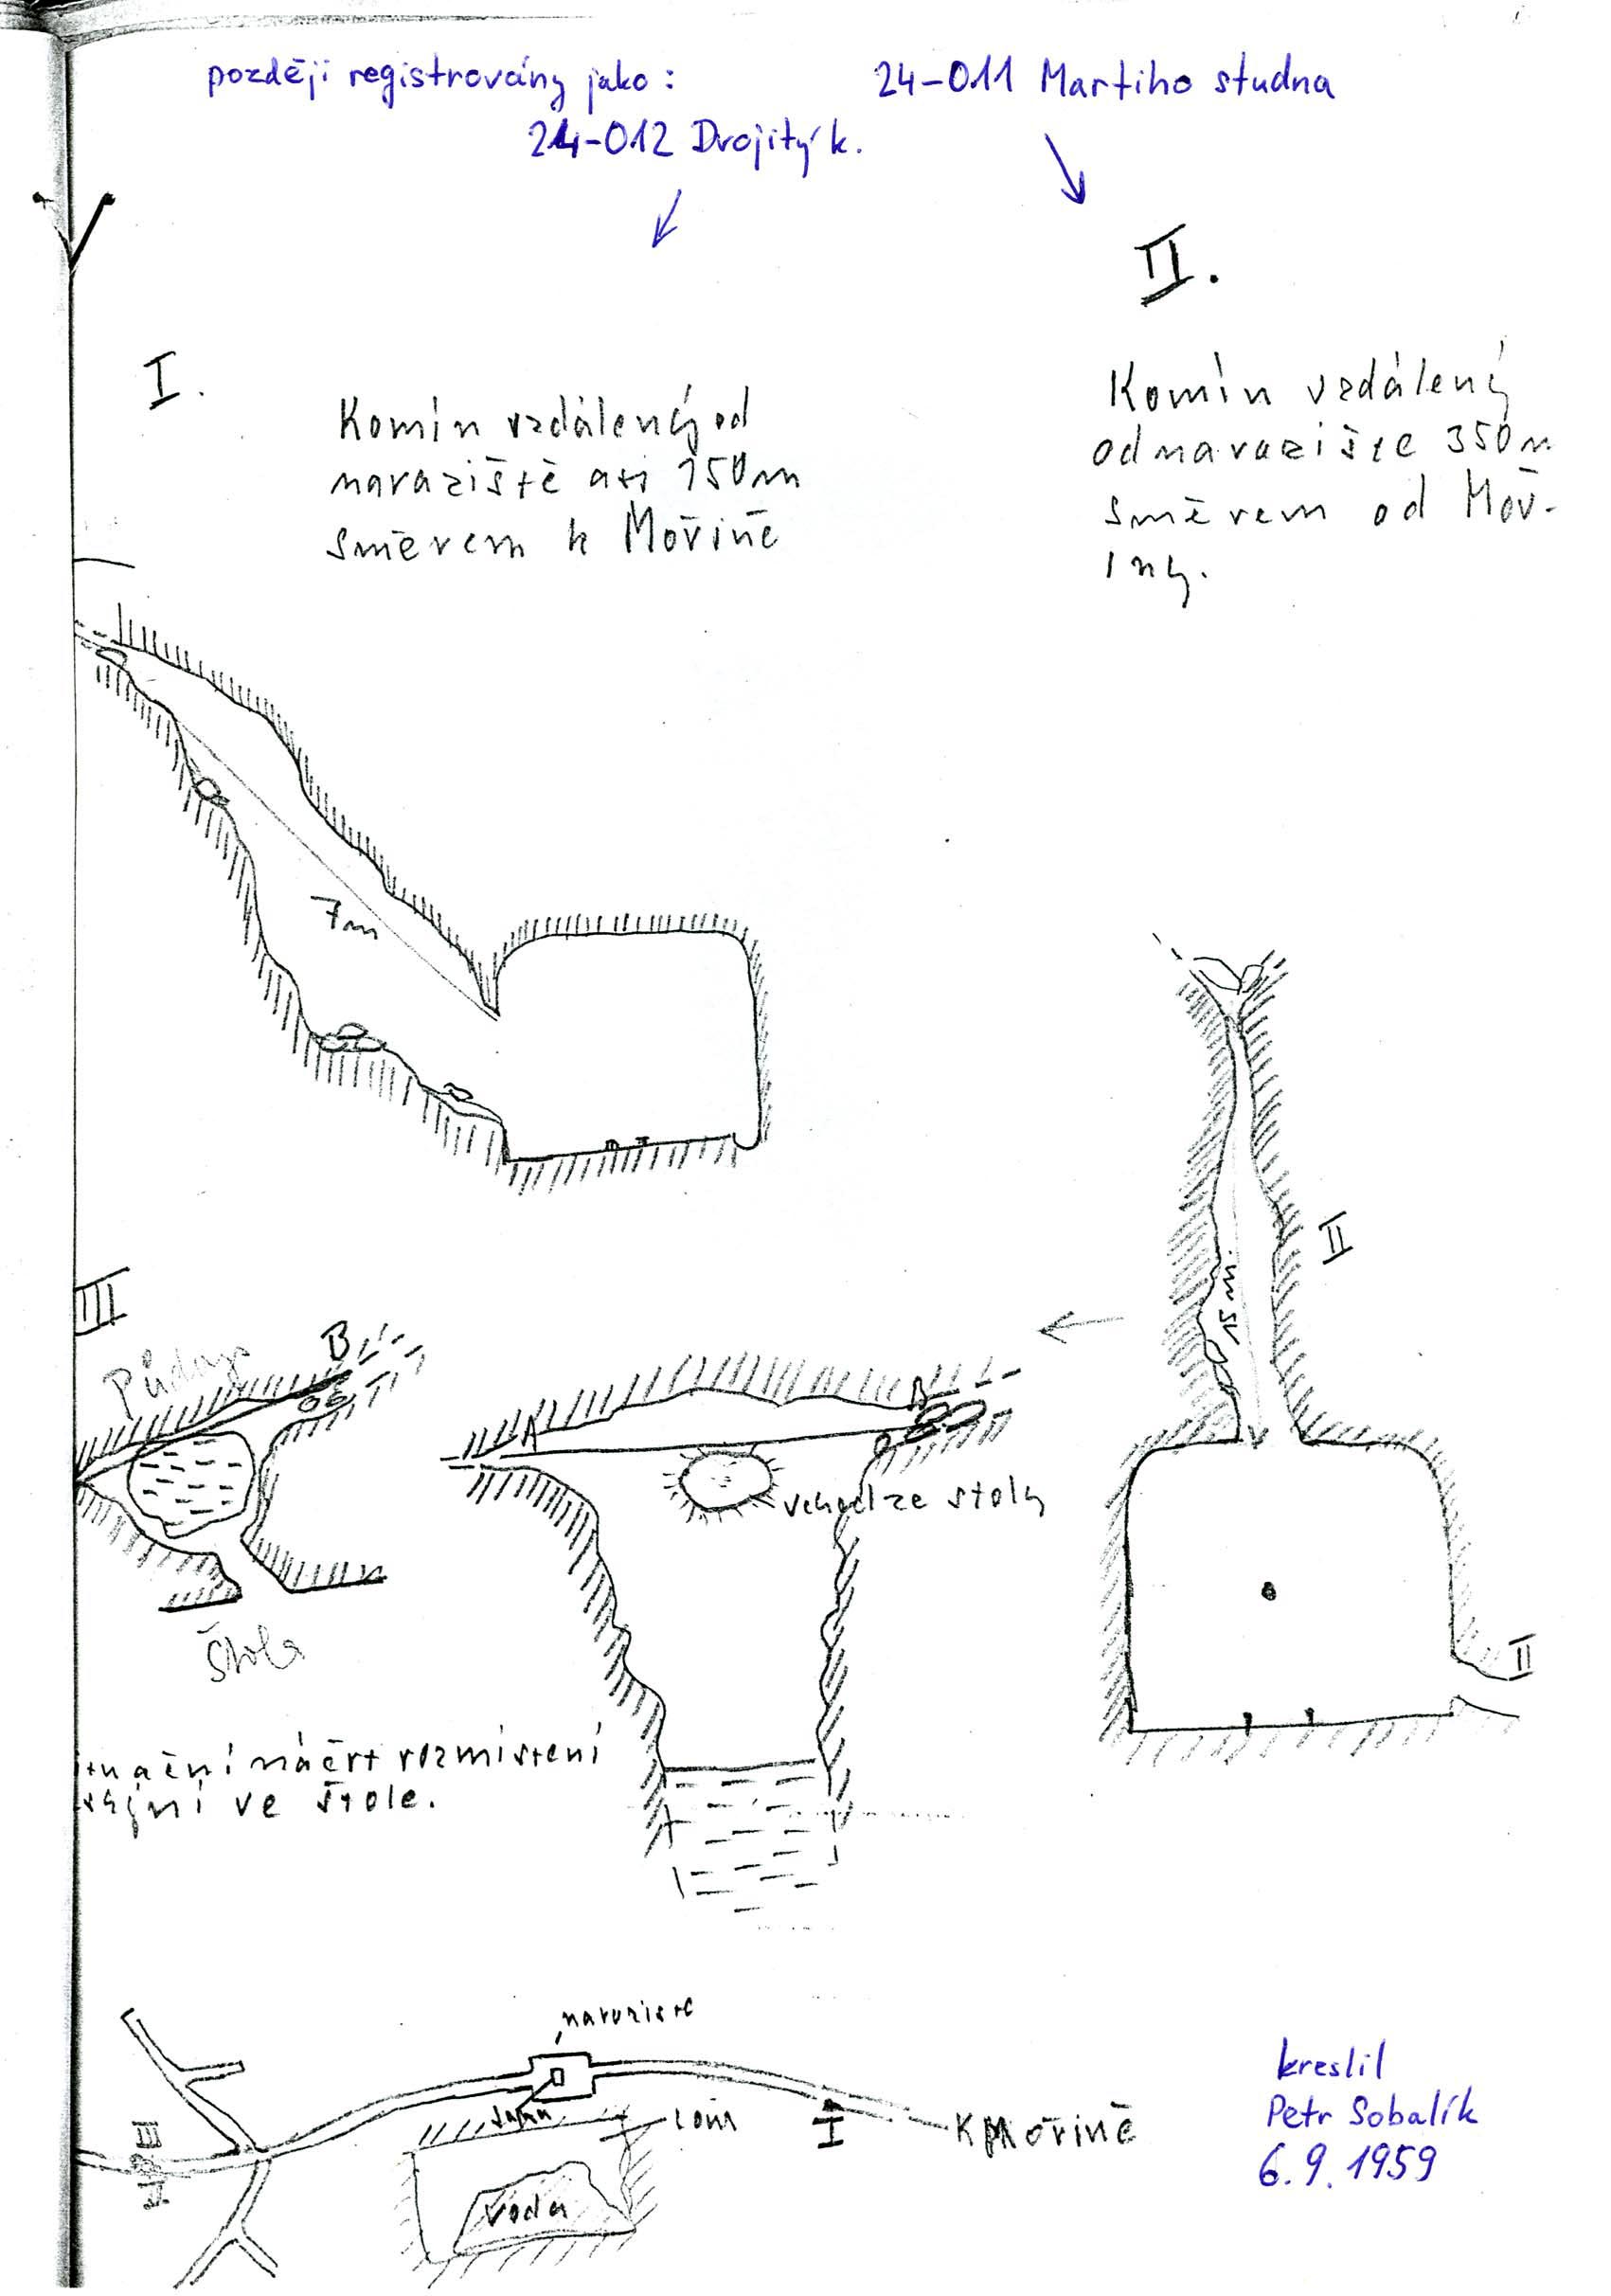 později registrovány jako:
24-012 Dvojitý k.
24-011 Martiho studna
I.
Komín vzdálený od
naraziště asi 150m
směrem k Mořině
II.
Komín vzdálený
od naraziště 350m
směrem od Moř-
iny.
7m
II
III
Půdorys
B
A
B
vchod ze štoly
Štola
II
tuační náčrt rozmístení
ve štole.
A
naraziste
jáma
III
I
K Mořině
voda
kreslil
Petr Sobalík
6.9.1959